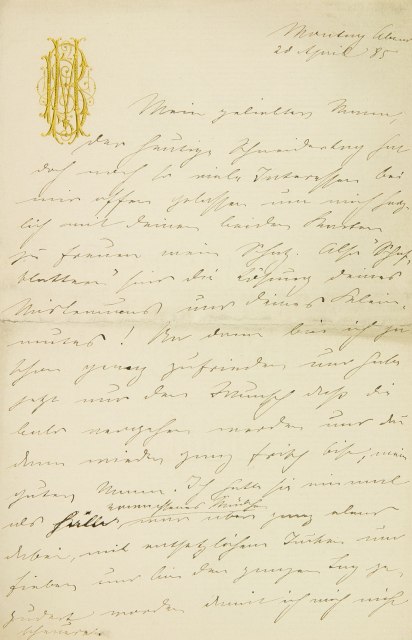 Montag Abend
20 April 85
Mein geliebter Mann,
der heutige Schneidertag hat
doch noch so viele Interessen bei
mir offen gelassen um mich herz-
lich mit deinen beiden Karten
zu freuen mein Schatz. Also "Schaf-
blattern" sind die Lösung deines
Misslaunens und deines Klein-
mutes! Na dann bin ich ja
schon ganz zufrieden und habe
jetzt nur den Wunsch dass die
bald vergehen werden und du
dann wieder ganz frisch bist, mein
guter Mann. Ich hatte sie einmal
als erwachsenes Mädchen
und war ganz elend
dabei, mit entsetzlichem Jucken und
Fieber und bin den ganzen Tag ge-
pudert worden damit ich mich nicht